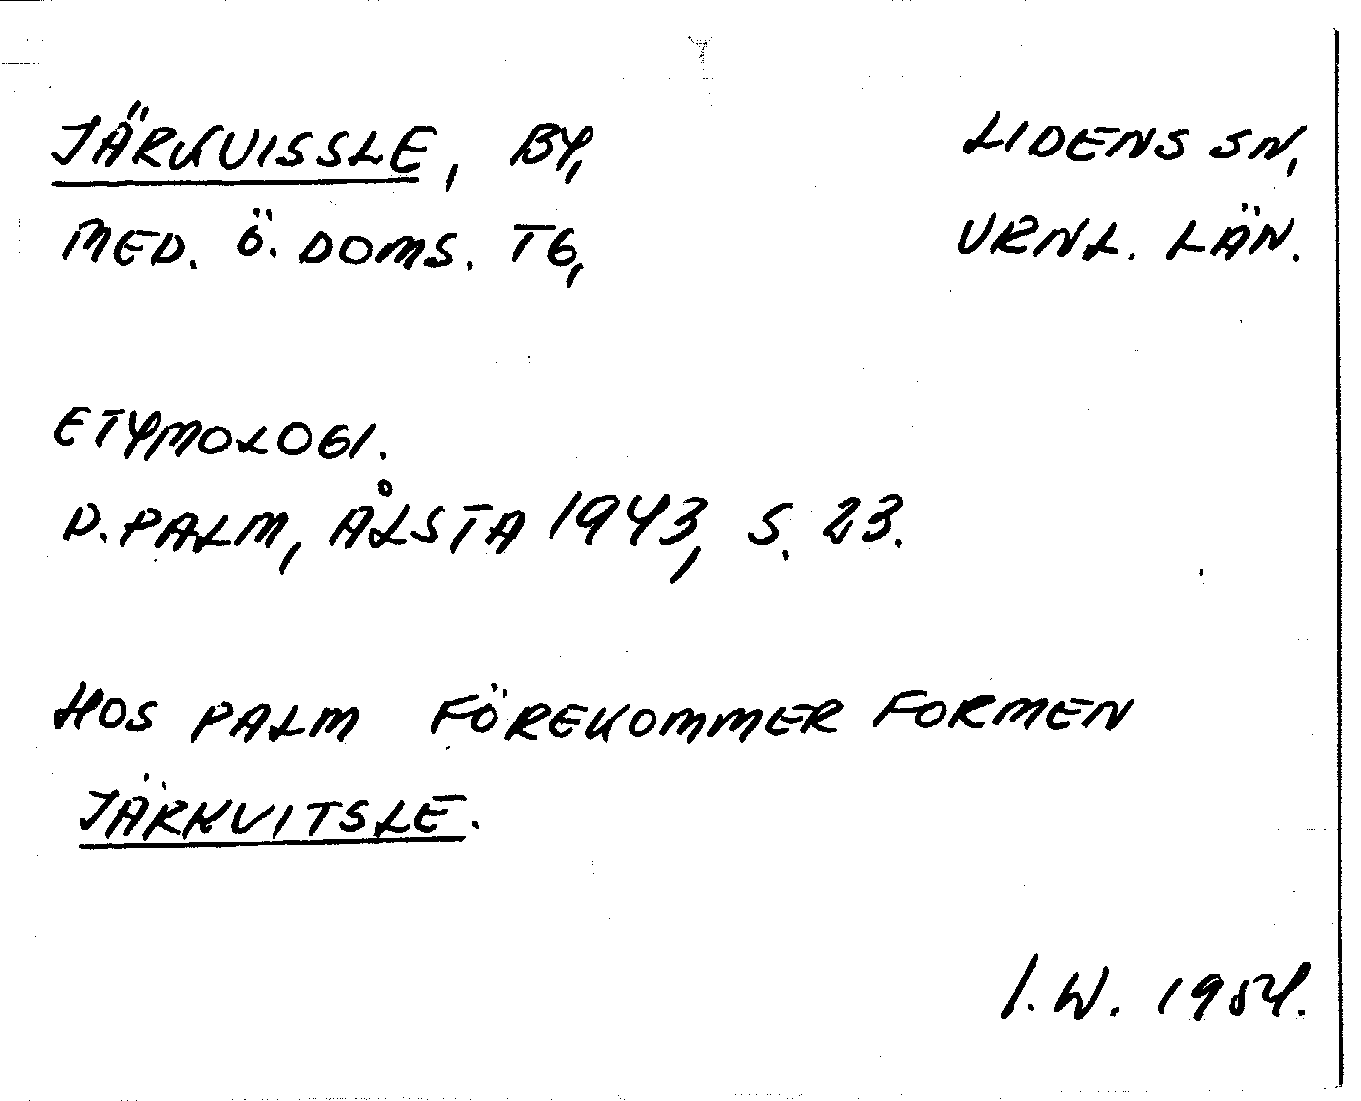 JÄRKVISSLE, BY, LIDENS SN,
MED. Ö. DOMS. TG, VRNL. LÄN.
ETYMOLOGI.
D. PALM, ÅLSTA 1943, S. 23.
HOS PALM FÖREKOMMER FORMEN
JÄRKVITSLE.
I.W. 1954.